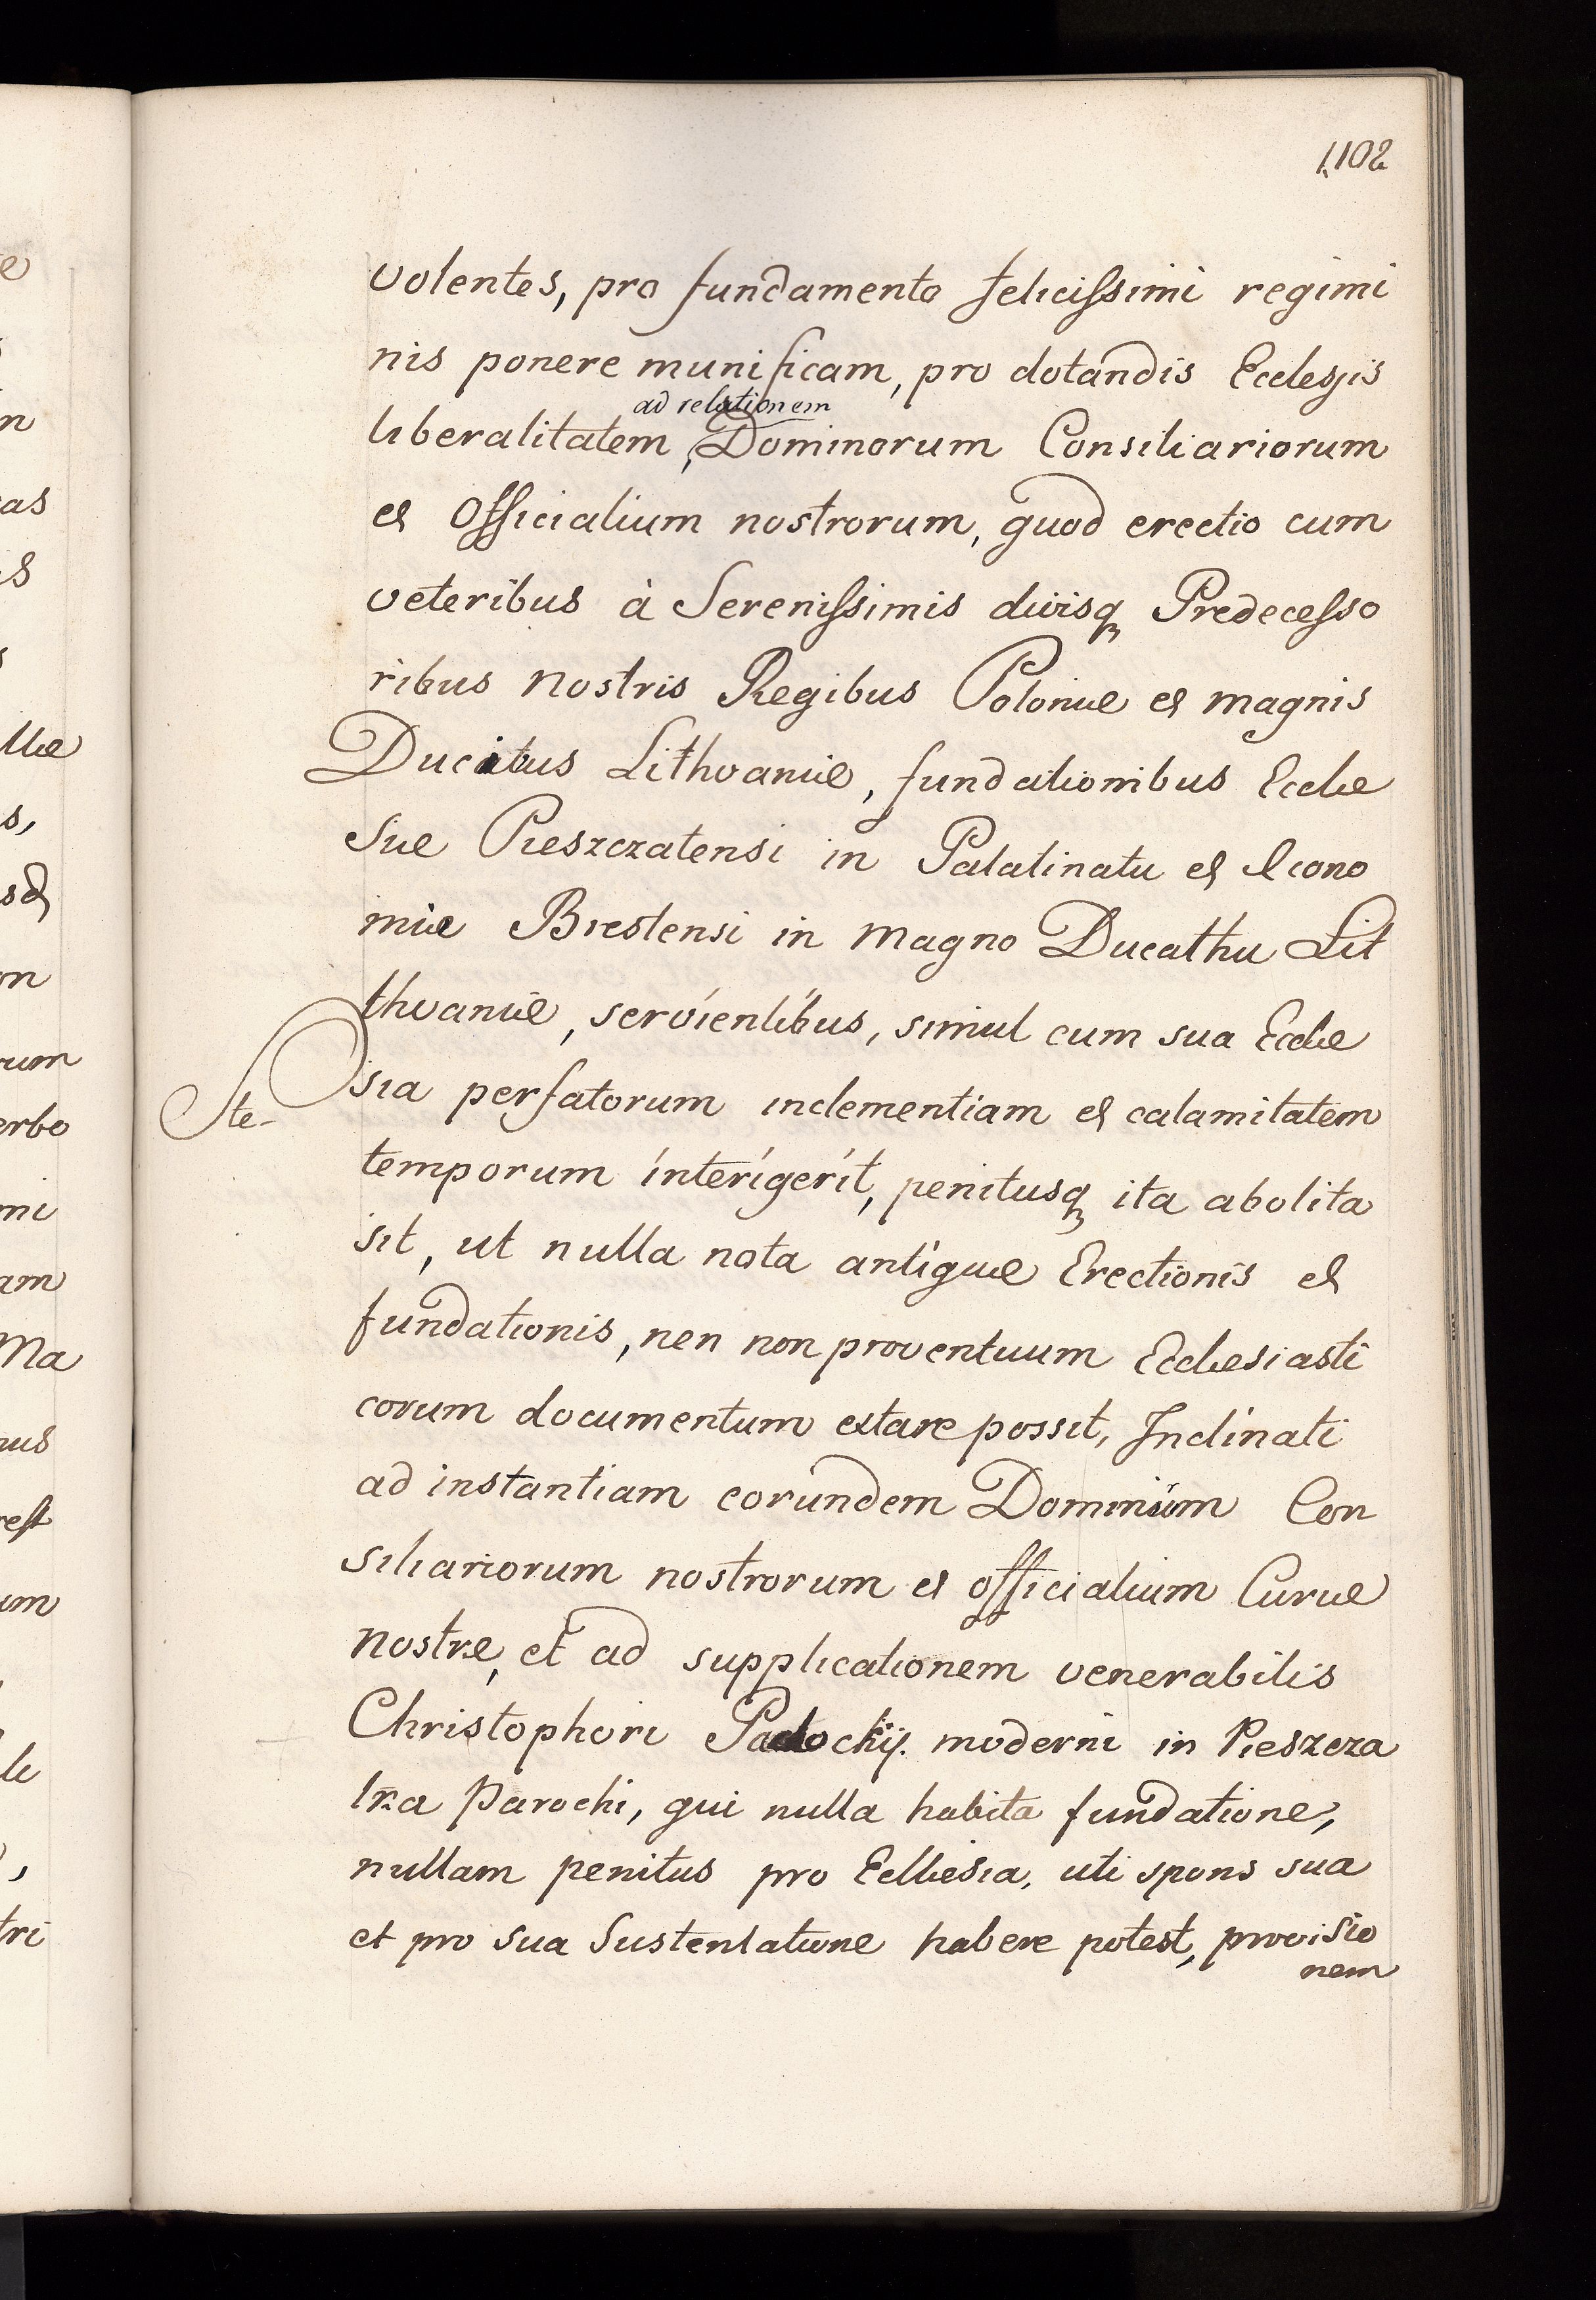 1102
volentes, pro fundamento felicissimi regimi
nis ponere munificam, pro dotandis Ecclesys
ad relationem
liberalitatem, Dominorum Consiliariorum
et Officialium nostrorum, quod erectio cum
veteribus à Serenissimis divisq Predecesso
ribus nostris Regibus Poloniæ et magnis
Ducibus Lithvaniæ, fundationibus Eccle
siæ Pieszczatensi in Palatinatu et Econo
miæ Brestensi in magno Ducathu Lit
thvaniæ, servientibus, simul cum sua Eccle
Ste-
sia perfatorum inclementiam et calamitatem
temporum interigerit, penitusq ita abolita
sit, ut nulla nota antiquæ Erectionis et
fundationis, nen non proventuum Ecclesiasti
corum documentum extare possit, Inclinati
ad instantiam eorundem Dominum Con
siliariorum nostrorum et officialium Curiæ
nostræ, et ad supplicationem venerabilis
Christophori moderni in Pieszcza
tka Parochi, qui nulla habita fundatione,
nullam penitus pro Ecclesia, uti spons sua
et pro sua Sustentatione habere potest, provisio
nem